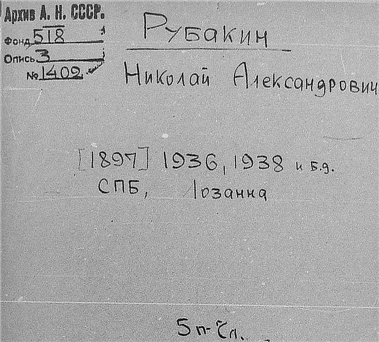 Архив А. Н. СССР.
Фонд 518
Опись 3
№ 1402
Рубакин
Николай Александрович
[1897] 1936, 1938 и б.д.
СПБ, Лозанна
5 п-